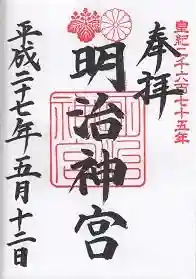 皇紀二千六百七十五年
奉拝
明治神宮
平成二十七年五月十二日